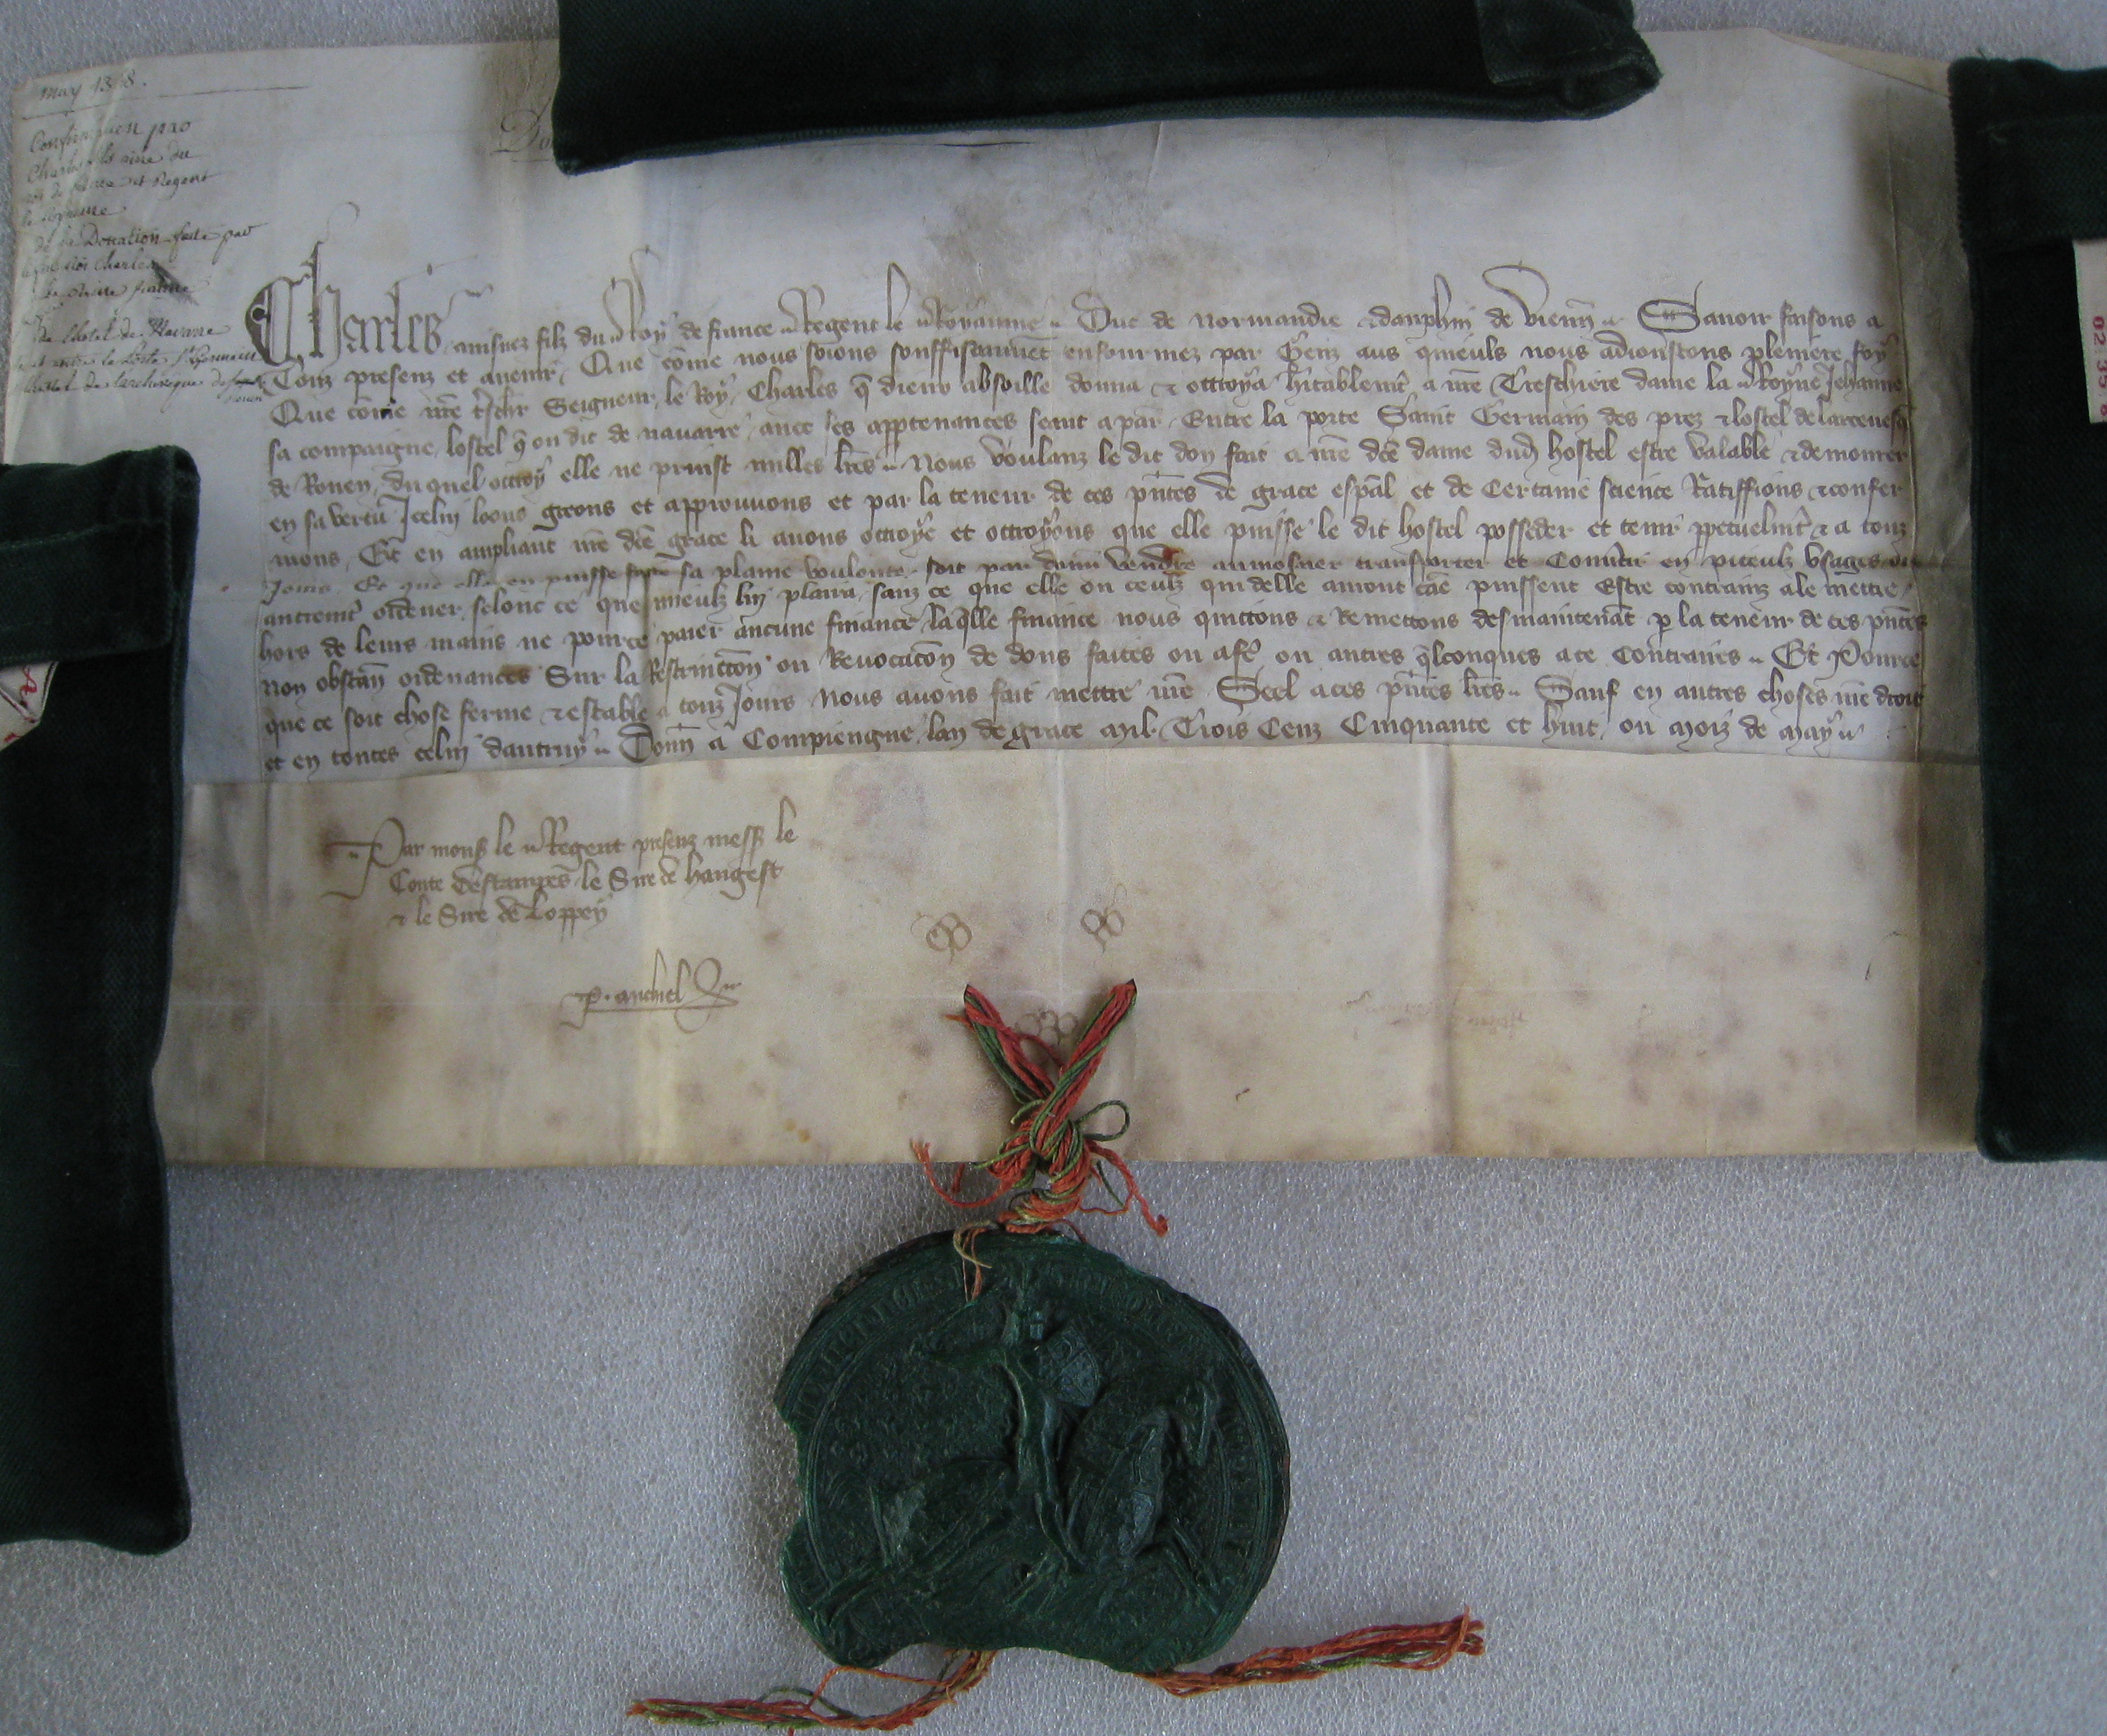 may 1358.
Confirmation par
Charles fils aine du
roi de france et Regent
le royaume
de la Donation faite par
le roi Charles
de l'hotel de Navarre
entre la Porte St Germain
l'hotel de l'archeveque de
Rouen
Charles ainsnez filz du Roy de france Regent le Royaume Duc de normandie & dauphin de vienn Sauoir faisons a
Touz presenz et auenir, Que cōme nous soions souffisaument enfourmez par Genz aus quieuls nous adioustons pleniere foy
Que cōme nr̄e Seigneur, le Roy, Charles q̄ dieux absoille donna & ottroya hitablemt, a nr̄e Treschiere dame la Royne Jehanne
sa compaigne, lostel q̄ on dit de nauarre, auec les apptenances seant a par, Entre la porte Saint Germain des prez & lostel de larceuesq̄
de Rouen, du quel ottroy elle ne prinst nulles lr̄es Nous voulanz le dit don fait a nr̄e dc̄e dame dud hostel estre valable & demourer
en sa vertu Icelui loons greons et approuuons et par la teneur de ces pn̄tes de grace esp̄al et de certaine science Ratiffions & confer
mons, Et en ampliant nr̄e dc̄e grace li auons ottroye et ottroyons que elle puisse le dit hostel posseder et tenir ppetuelmt & a touz
Jours Et que elle en puisse faire sa plaine voulente, soit par vendre aumosner transporter et Conuertir en piteulz vsages ou
autremt ordener, selonc ce que mieulz luy plaira, sanz ce que elle ou ceulz qui delle auront cāe puissent Estre contrainz a le mettre,
hors de leurs mains ne pource paier aucune finance, laq̄lle finance nous quictons & Remettons desmaintenāt p la teneur de ces pn̄tes
non obstan ordenances Sur la Restrinction ou Reuocacōn de dons faites ou a fē ou autres q̄lconques a ce Contraires Et Pource
que ce soit chose ferme & estable a touz Jours Nous auons fait mettre nr̄e Seel a ces pn̄tes lr̄es Sauf en autres choses nr̄e droit
et en toutes celui dautruy Donn a Compiengne, lan de grace Mil Trois Cenz Cinquante et huit, ou Moiz de May
Par mons le Regent presenz mess le
Conte destampes le Sire de hangest
& le Sire de Loppy
P. michiel